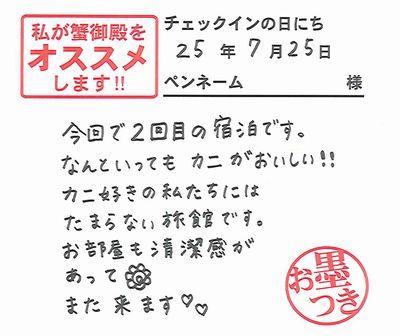 私が蟹御殿を
オススメ
します!!
チェックインの日にち
25年7月25日
ペンネーム 様
今回で2回目の宿泊です。
なんといっても カニがおいしい!!
カニ好きの私たちには
たまらない旅館です。
お部屋も清潔感が
あって
また来ます♡♡
お墨
つき